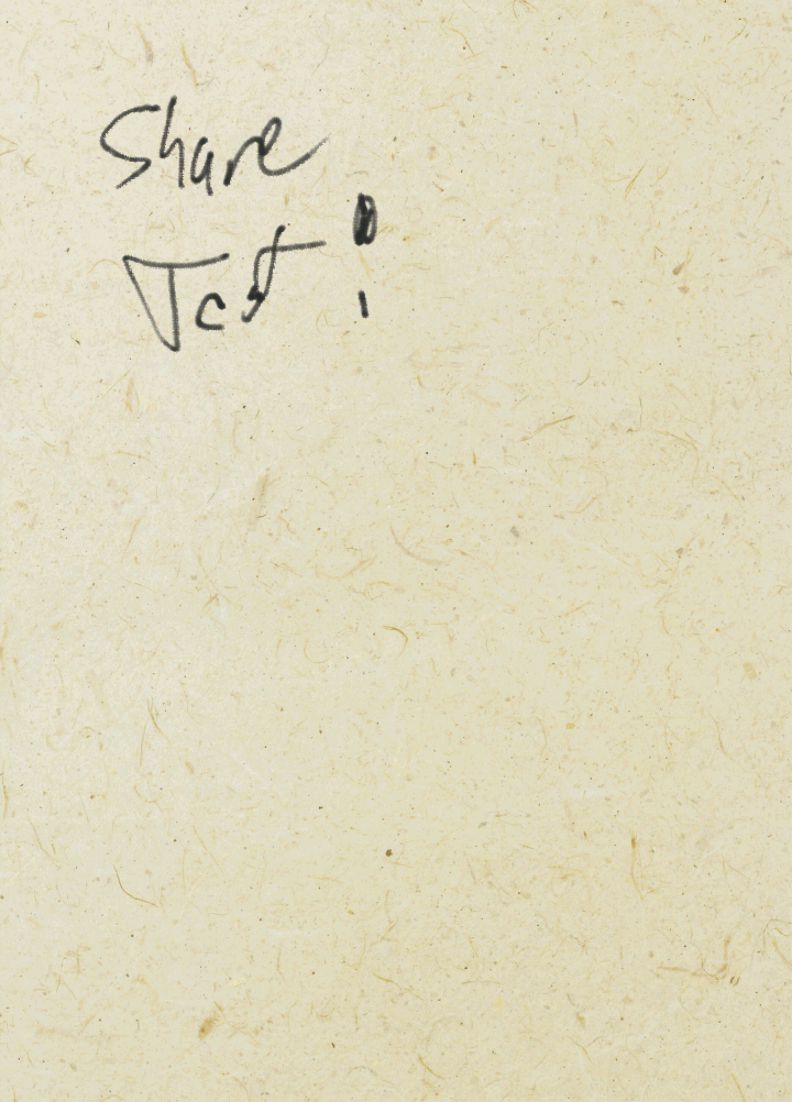 Share
Test!